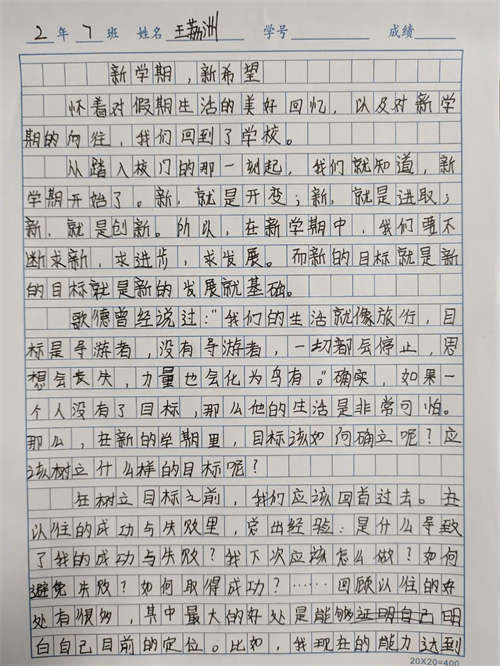 2 年 7 班 姓名 王荔洲 学号 成绩
新学期，新希望
怀着对假期生活的美好回忆，以及对新学
期的向往，我们回到了学校。
从踏入校门的那一刻起，我们就知道，新
学期开始了。新，就是开变；新，就是进取；
新，就是创新。所以，在新学期中，我们要不
断求新，求进步，求发展。而新的目标就是新
的目标就是新的发展就基础。
歌德曾经说过："我们的生活就像旅行，目
标是导游者，没有导游者，一切都会停止，思
想会丧失，力量也会化为乌有。"确实，如果一
个人没有了目标，那么他的生活是非常可怕。
那么，在新的学期里，目标该如何确立呢？应
该树立什么样的目标呢？
在树立目标之前，我们应该回首过去。在
以往的成功与失败里，总出经验：是什么导致
了我的成功与失败？我下次应该怎么做？如何
避免失败？如何取得成功？……回顾以往的好
处有很多，其中最大的好处是能够证明自己明
白自己目前的定位。比如，我现在的能力达到
20X20=400